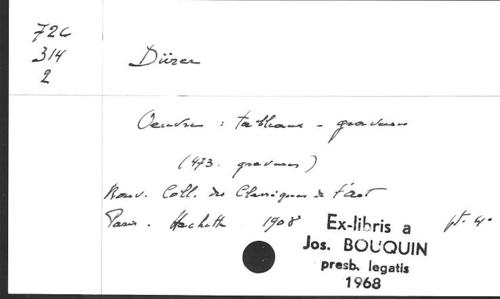 726
314
2
Dürer
Oeuvres : tableaux - gravures
(473 gravures)
Nouv. Coll. des Classiques de l'art
Paris - Hachette 1908 pt. 4°
Ex-libris a
Jos. BOUQUIN
presb. legatis
1968